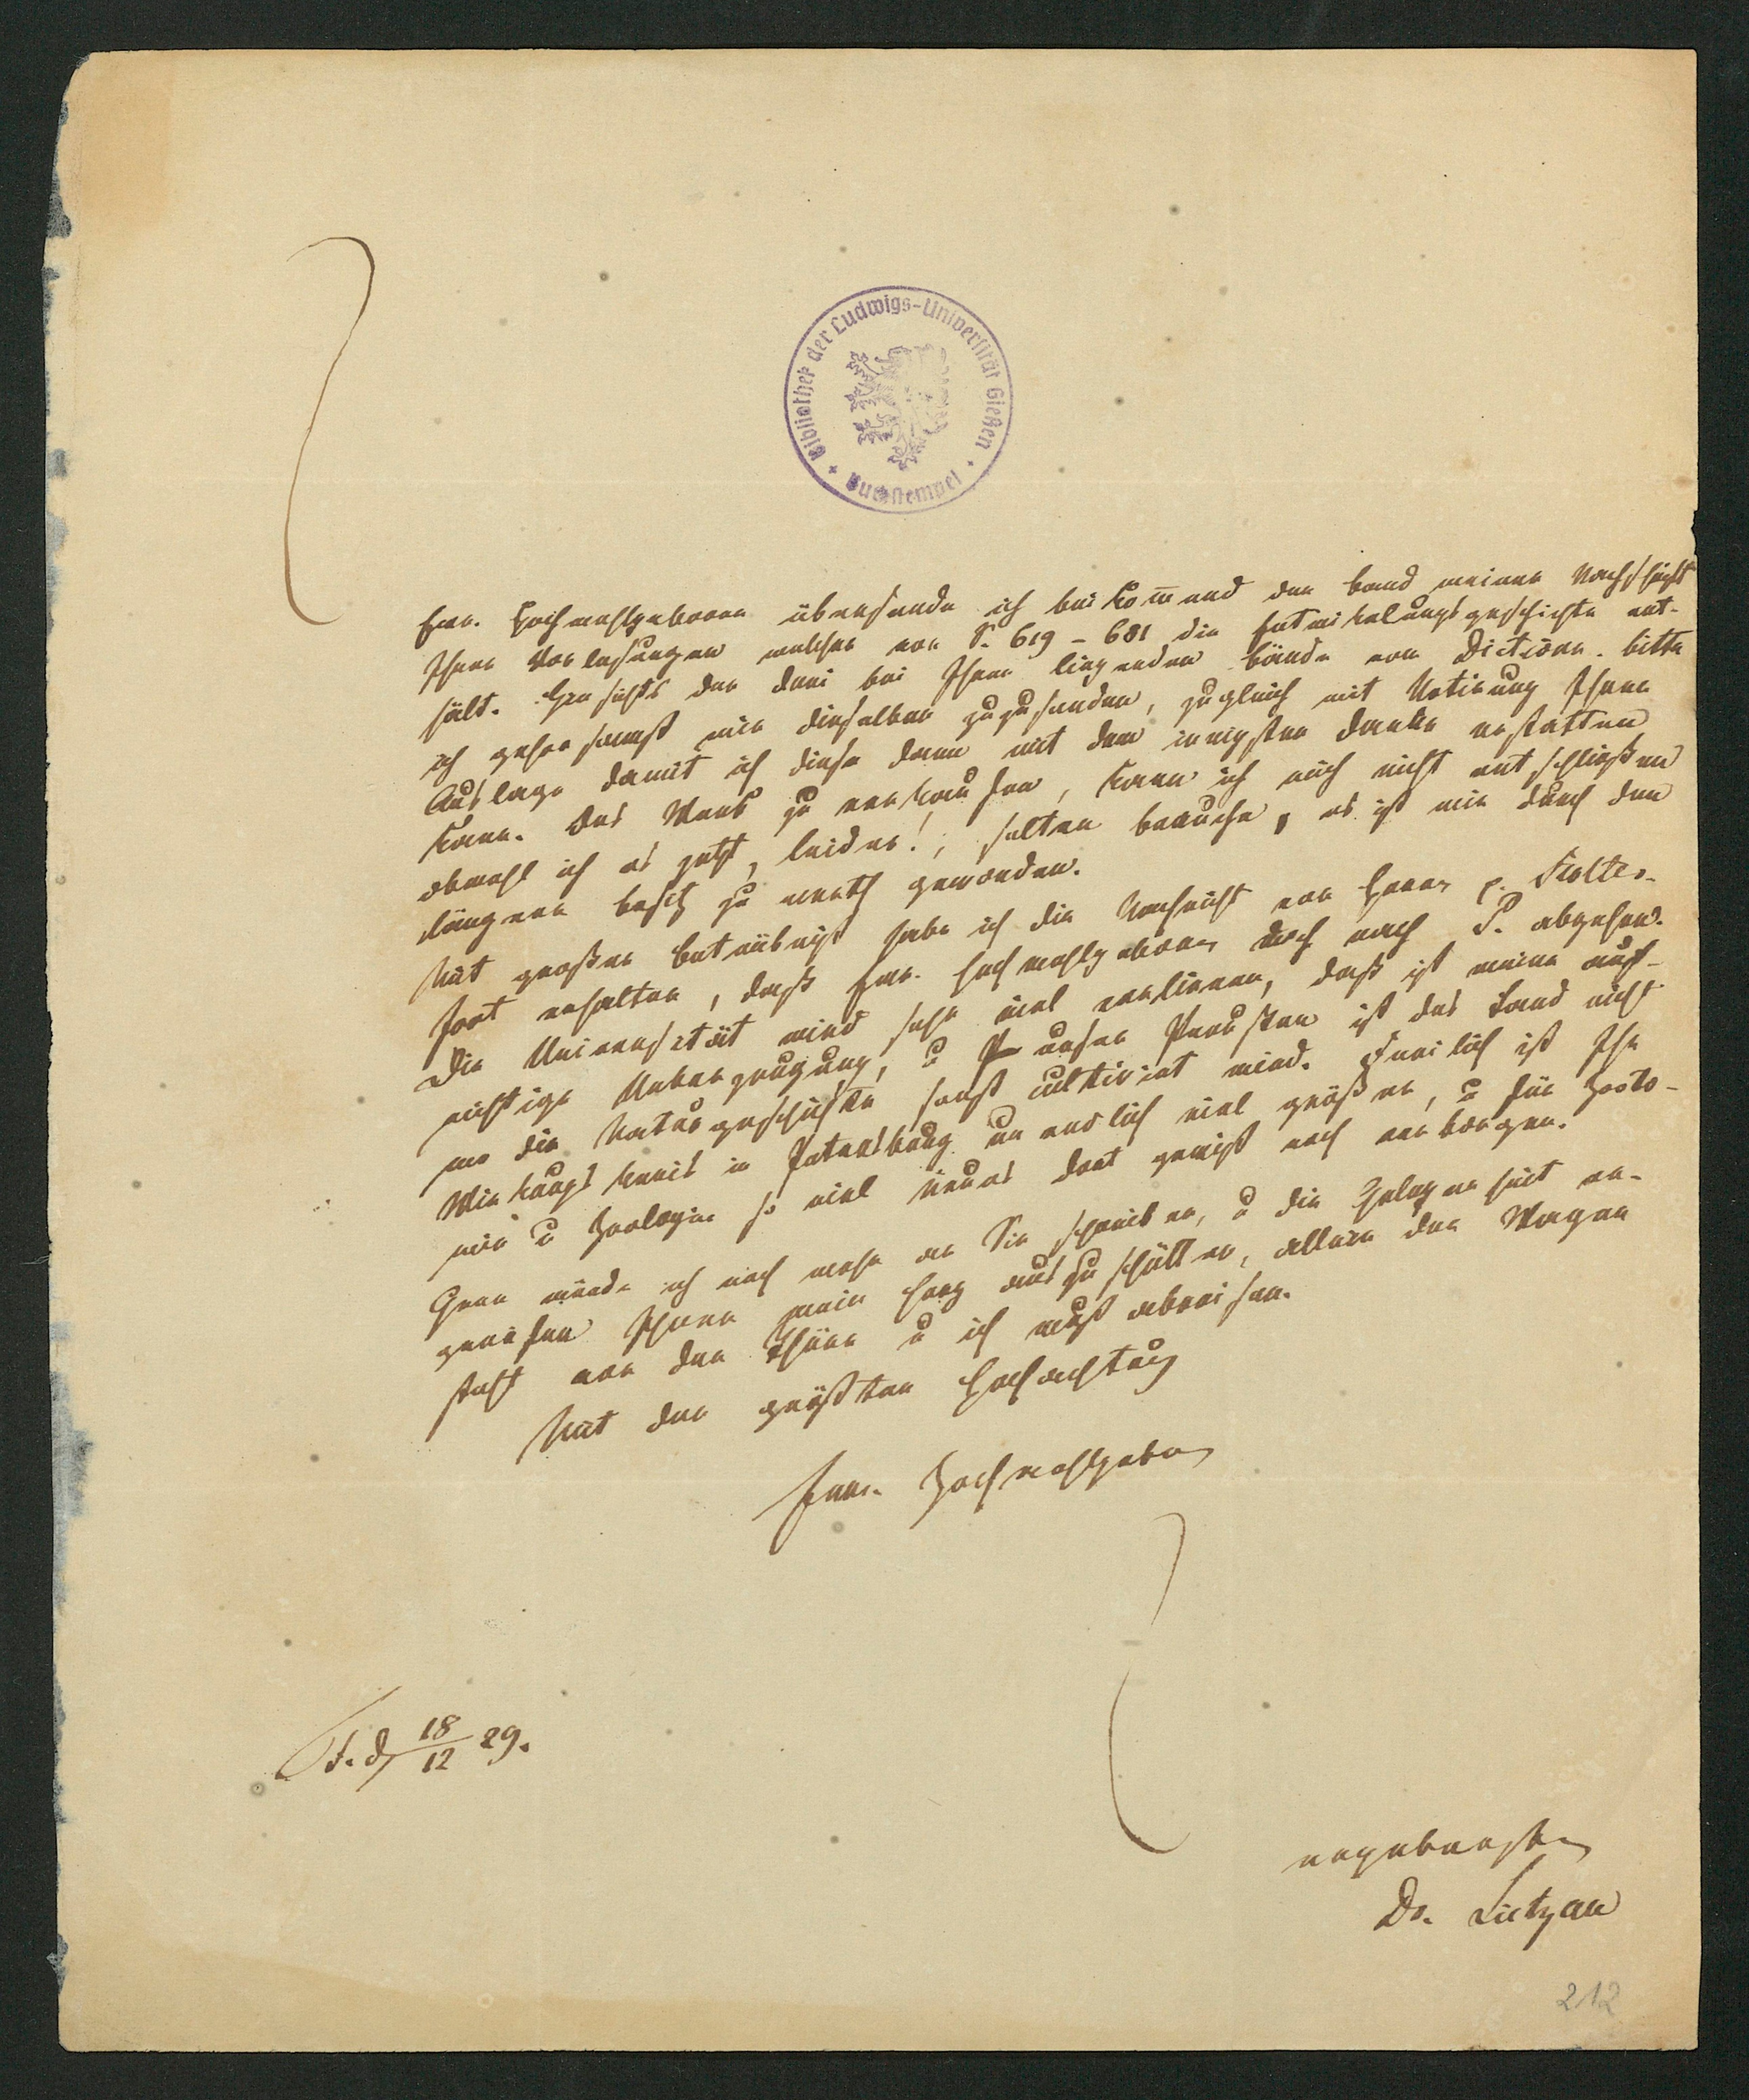 Bibliothek der Ludwigs-Universität Gießen
Buchstempel
Ew. Hochwohlgeboren übersende ich beikom̅end den Band meiner Nachschrift
Ihrer Vorlesungen welcher von S. 619 - 681 die Entwickelungsgeschichte ent-
hält. der drei bei Ihnen liegenden Bände vom Dictionn. bitte
ich gehorsamst mir dieselben zuzusenden, zugleich mit Notirung Ihrer
Auslage damit ich diese dann mit dem innigsten Danke erstatten
kann. Das Werk zu verkaufen, kann ich mich nicht entschließen
obwohl ich es jetzt, leider!, selten brauche, es ist mir durch den
längeren Besitz zu werth geworden.
Mit großer Betrübniß habe ich die Nachricht von Herrn p. Kolter-
fort erhalten, daß Ew. Hochwohlgeboren doch nach P. abgehen.
Die Universität wird sehr viel verlieren, daß ist meine auf-
richtige Ueberzeugung, u unser Preußen ist das Land nicht
wo die Naturgeschichte sonst cultivirt wird. Freilich ist Ihr
Wirkungskreis in Petersburg viel größer, u für Zooto-
mie u Zoologie so viel neues dort gewiß noch verborgen.
Gern würde ich noch mehr an Sie schreiben, u die Gelegenheit er-
greifen Ihnen mein Herz auszuschütten, allein der Wagen
steht vor der Thüre u ich muß abreisen.
Mit der größten Hochachtung
Ew. Hochwohlgeboren
d. 18/12 29.
ergebenster
Dr. Lietzau
212